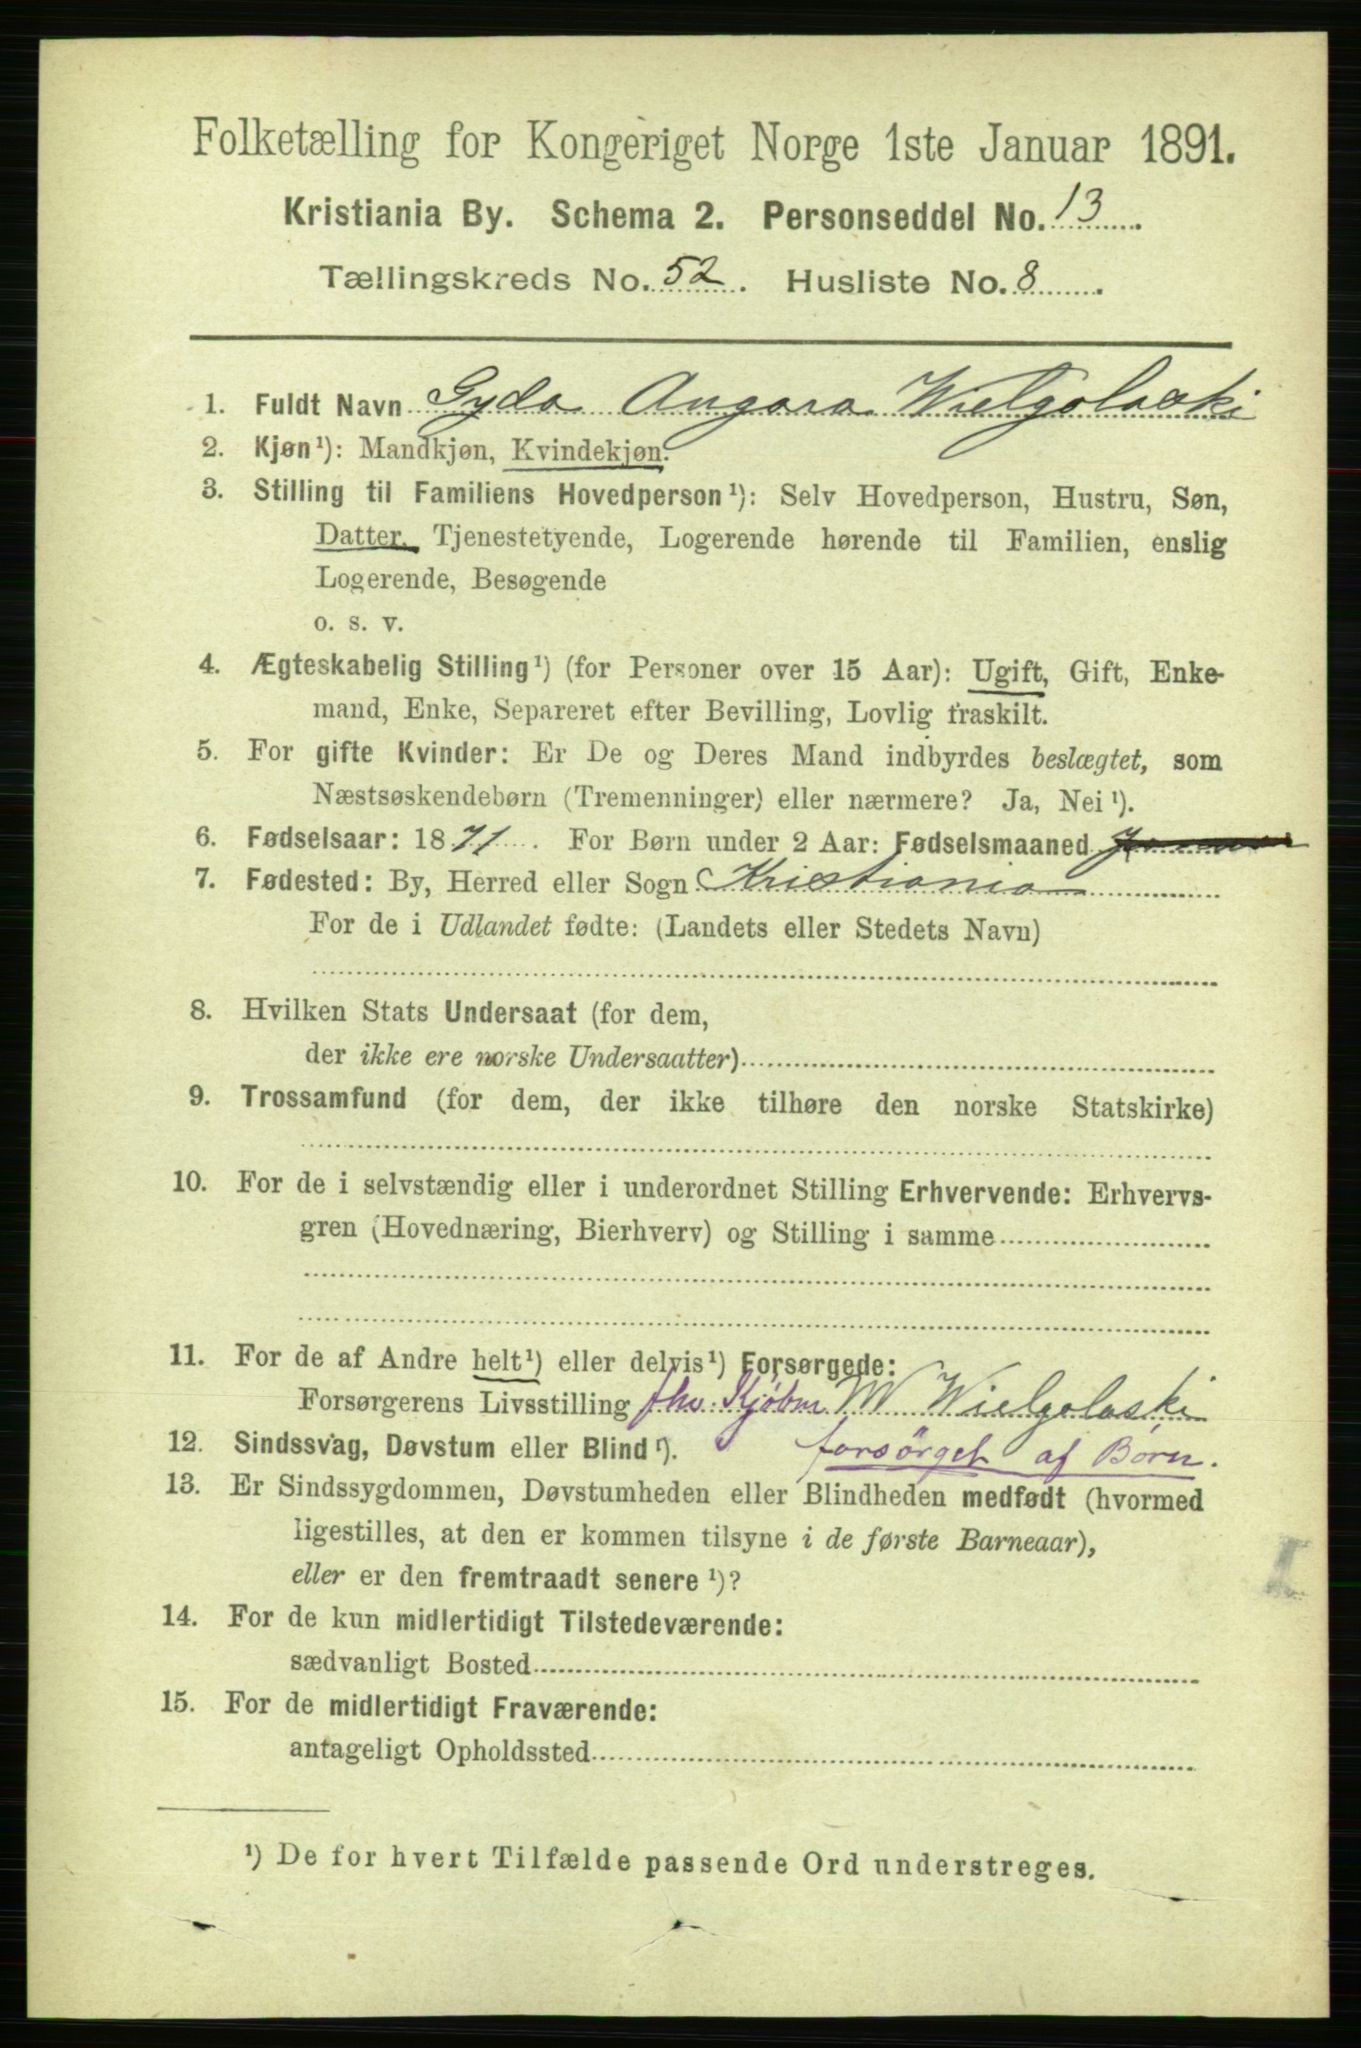 Folketælling for Kongeriget Norge 1ste Januar 1891.
Kristiania By. Schema 2. Personseddel No. 13
Tællingskreds No. 52. Husliste No. 8.
1. Fuldt Navn Gyda Angora Wielgolaski
2. Kjøn¹): Mandkjøn, Kvindekjøn.
3. Stilling til Familiens Hovedperson¹): Selv Hovedperson, Hustru, Søn,
Datter, Tjenestetyende, Logerende hørende til Familien, enslig
Logerende, Besøgende
o. s. v.
4. Ægteskabelig Stilling¹) (for Personer over 15 Aar): Ugift, Gift, Enke-
mand, Enke, Separeret efter Bevilling, Lovlig fraskilt.
5. For gifte Kvinder: Er De og Deres Mand indbyrdes beslægtet, som
Næstsøskendebørn (Tremenninger) eller nærmere? Ja, Nei¹).
6. Fødselsaar: 1871. For Børn under 2 Aar: Fødselsmaaned
7. Fødested: By, Herred eller Sogn Kristiania
For de i Udlandet fødte: (Landets eller Stedets Navn)
8. Hvilken Stats Undersaat (for dem,
der ikke ere norske Undersaatter)
9. Trossamfund (for dem, der ikke tilhøre den norske Statskirke)
10. For de i selvstændig eller i underordnet Stilling Erhvervende: Erhvervs-
gren (Hovednæring, Bierhverv) og Stilling i samme
11. For de af Andre helt¹) eller delvis¹) Forsørgede:
Forsørgerens Livsstilling fhv. Kjøbm W Wielgolaski
forsörget af Børn.
12. Sindssvag, Døvstum eller Blind¹).
13. Er Sindssygdommen, Døvstumheden eller Blindheden medfødt (hvormed
ligestilles, at den er kommen tilsyne i de første Barneaar),
eller er den fremtraadt senere¹)?
14. For de kun midlertidigt Tilstedeværende:
sædvanligt Bosted
15. For de midlertidigt Fraværende:
antageligt Opholdssted
¹) De for hvert Tilfælde passende Ord understreges.